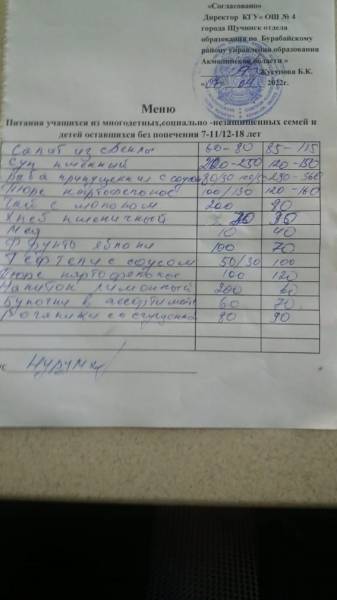 «Согласовано»
Директор КГУ« ОШ № 4
города Щучинск отдела
образования по Бурабайскому
району управления образования
Акмолинской области »
Жукупова Б.К.
2022г.
Меню
Питания учащихся из многодетных,социально -незащищенных семей и
детей оставшихся без попечения 7-11/12-18 лет
Салат из свеклы 60-80 85-115
Суп пшенный 200-250 120-150
Рыба припущенная с соусом
Пюре картофельное 100/130 120-160
Чай с молоком 200 90
Хлеб пшеничный
Мёд 10 40
Фрукты яблоки 100 70
Тефтели с соусом 50/30 100
Пюре картофельное 100 120
Напиток лимонный 200 60
Булочки в ассортименте 60 70
80 90